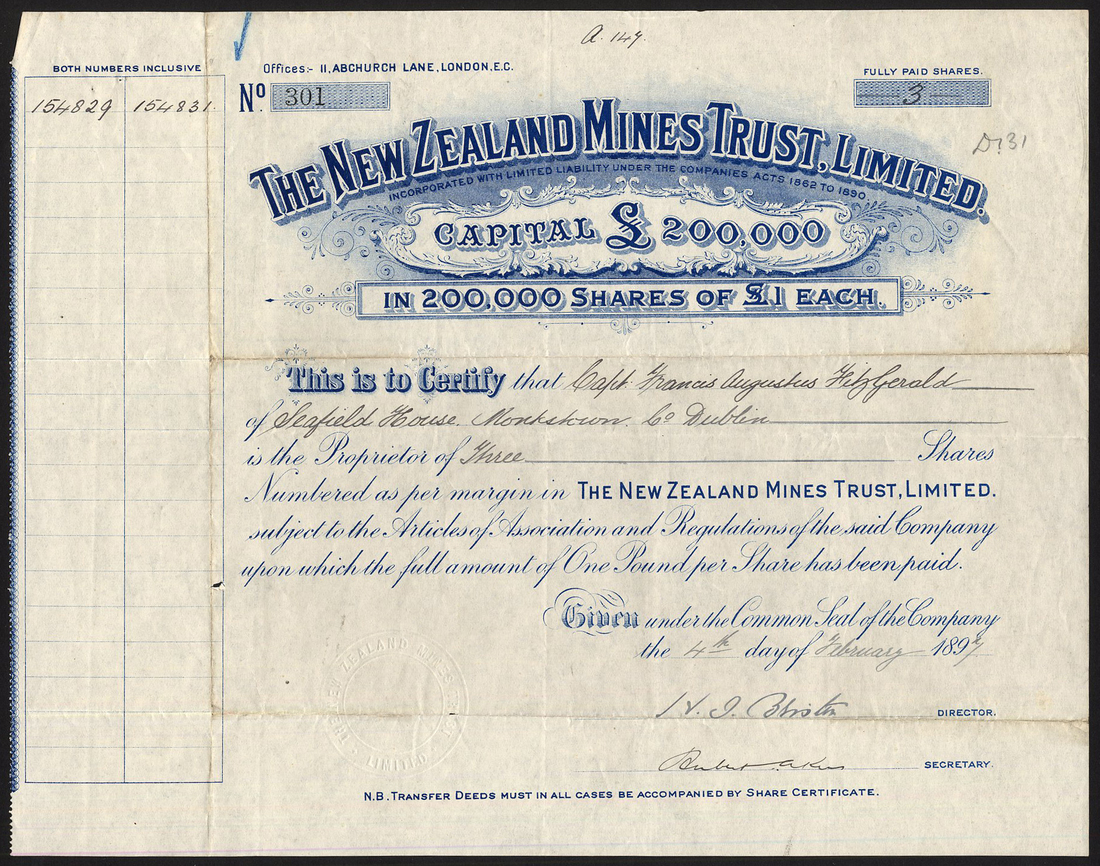 A. 147.
BOTH NUMBERS INCLUSIVE
154829 154831.
Offices:- 11, ABCHURCH LANE, LONDON. E.C.
FULLY PAID SHARES.
No. 301
3
D. 31
THE NEW ZEALAND MINES TRUST, LIMITED.
INCORPORATED WITH LIMITED LIABILITY UNDER THE COMPANIES ACTS 1862 TO 1890.
CAPITAL £ 200,000
IN 200,000 SHARES OF £1 EACH.
This is to Certify that Capt. Francis Augustus FitzGerald
of Seafield House. Monkstown. Co Dublin
is the Proprietor of Three Shares
Numbered as per margin in THE NEW ZEALAND MINES TRUST, LIMITED.
subject to the Articles of Association and Regulations of the said Company
upon which the full amount of One Pound per Share has been paid.
Given under the Common Seal of the Company
the 4th day of February 1897
DIRECTOR.
SECRETARY.
THE NEW ZEALAND MINES TRUST LIMITED
N.B. TRANSFER DEEDS MUST IN ALL CASES BE ACCOMPANIED BY SHARE CERTIFICATE.